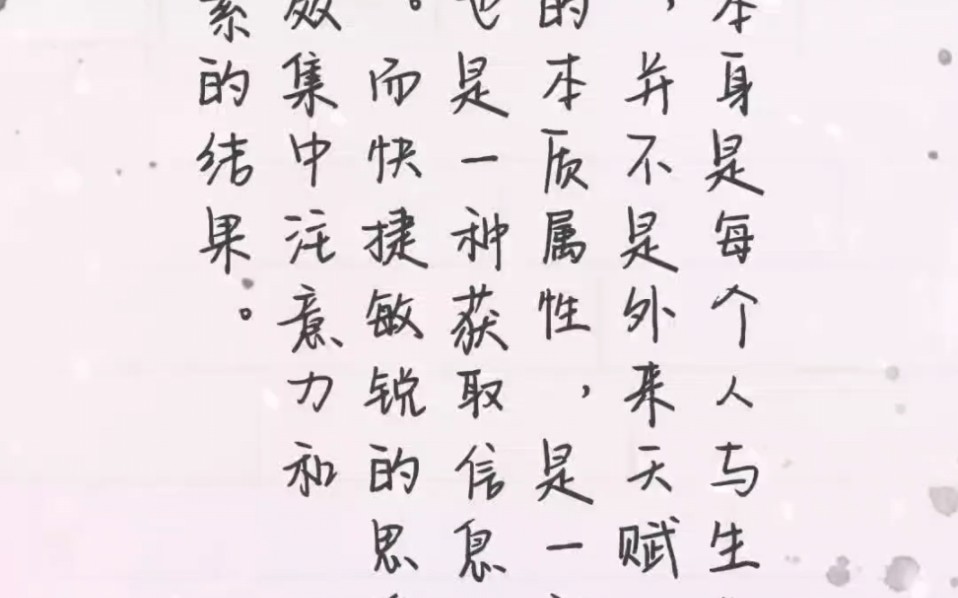 本身是每个人与生
，并不是外来天赋
的本质属性，是一
也是一种获取信息
。而快捷敏锐的思
效集中注意力和
索的结果。